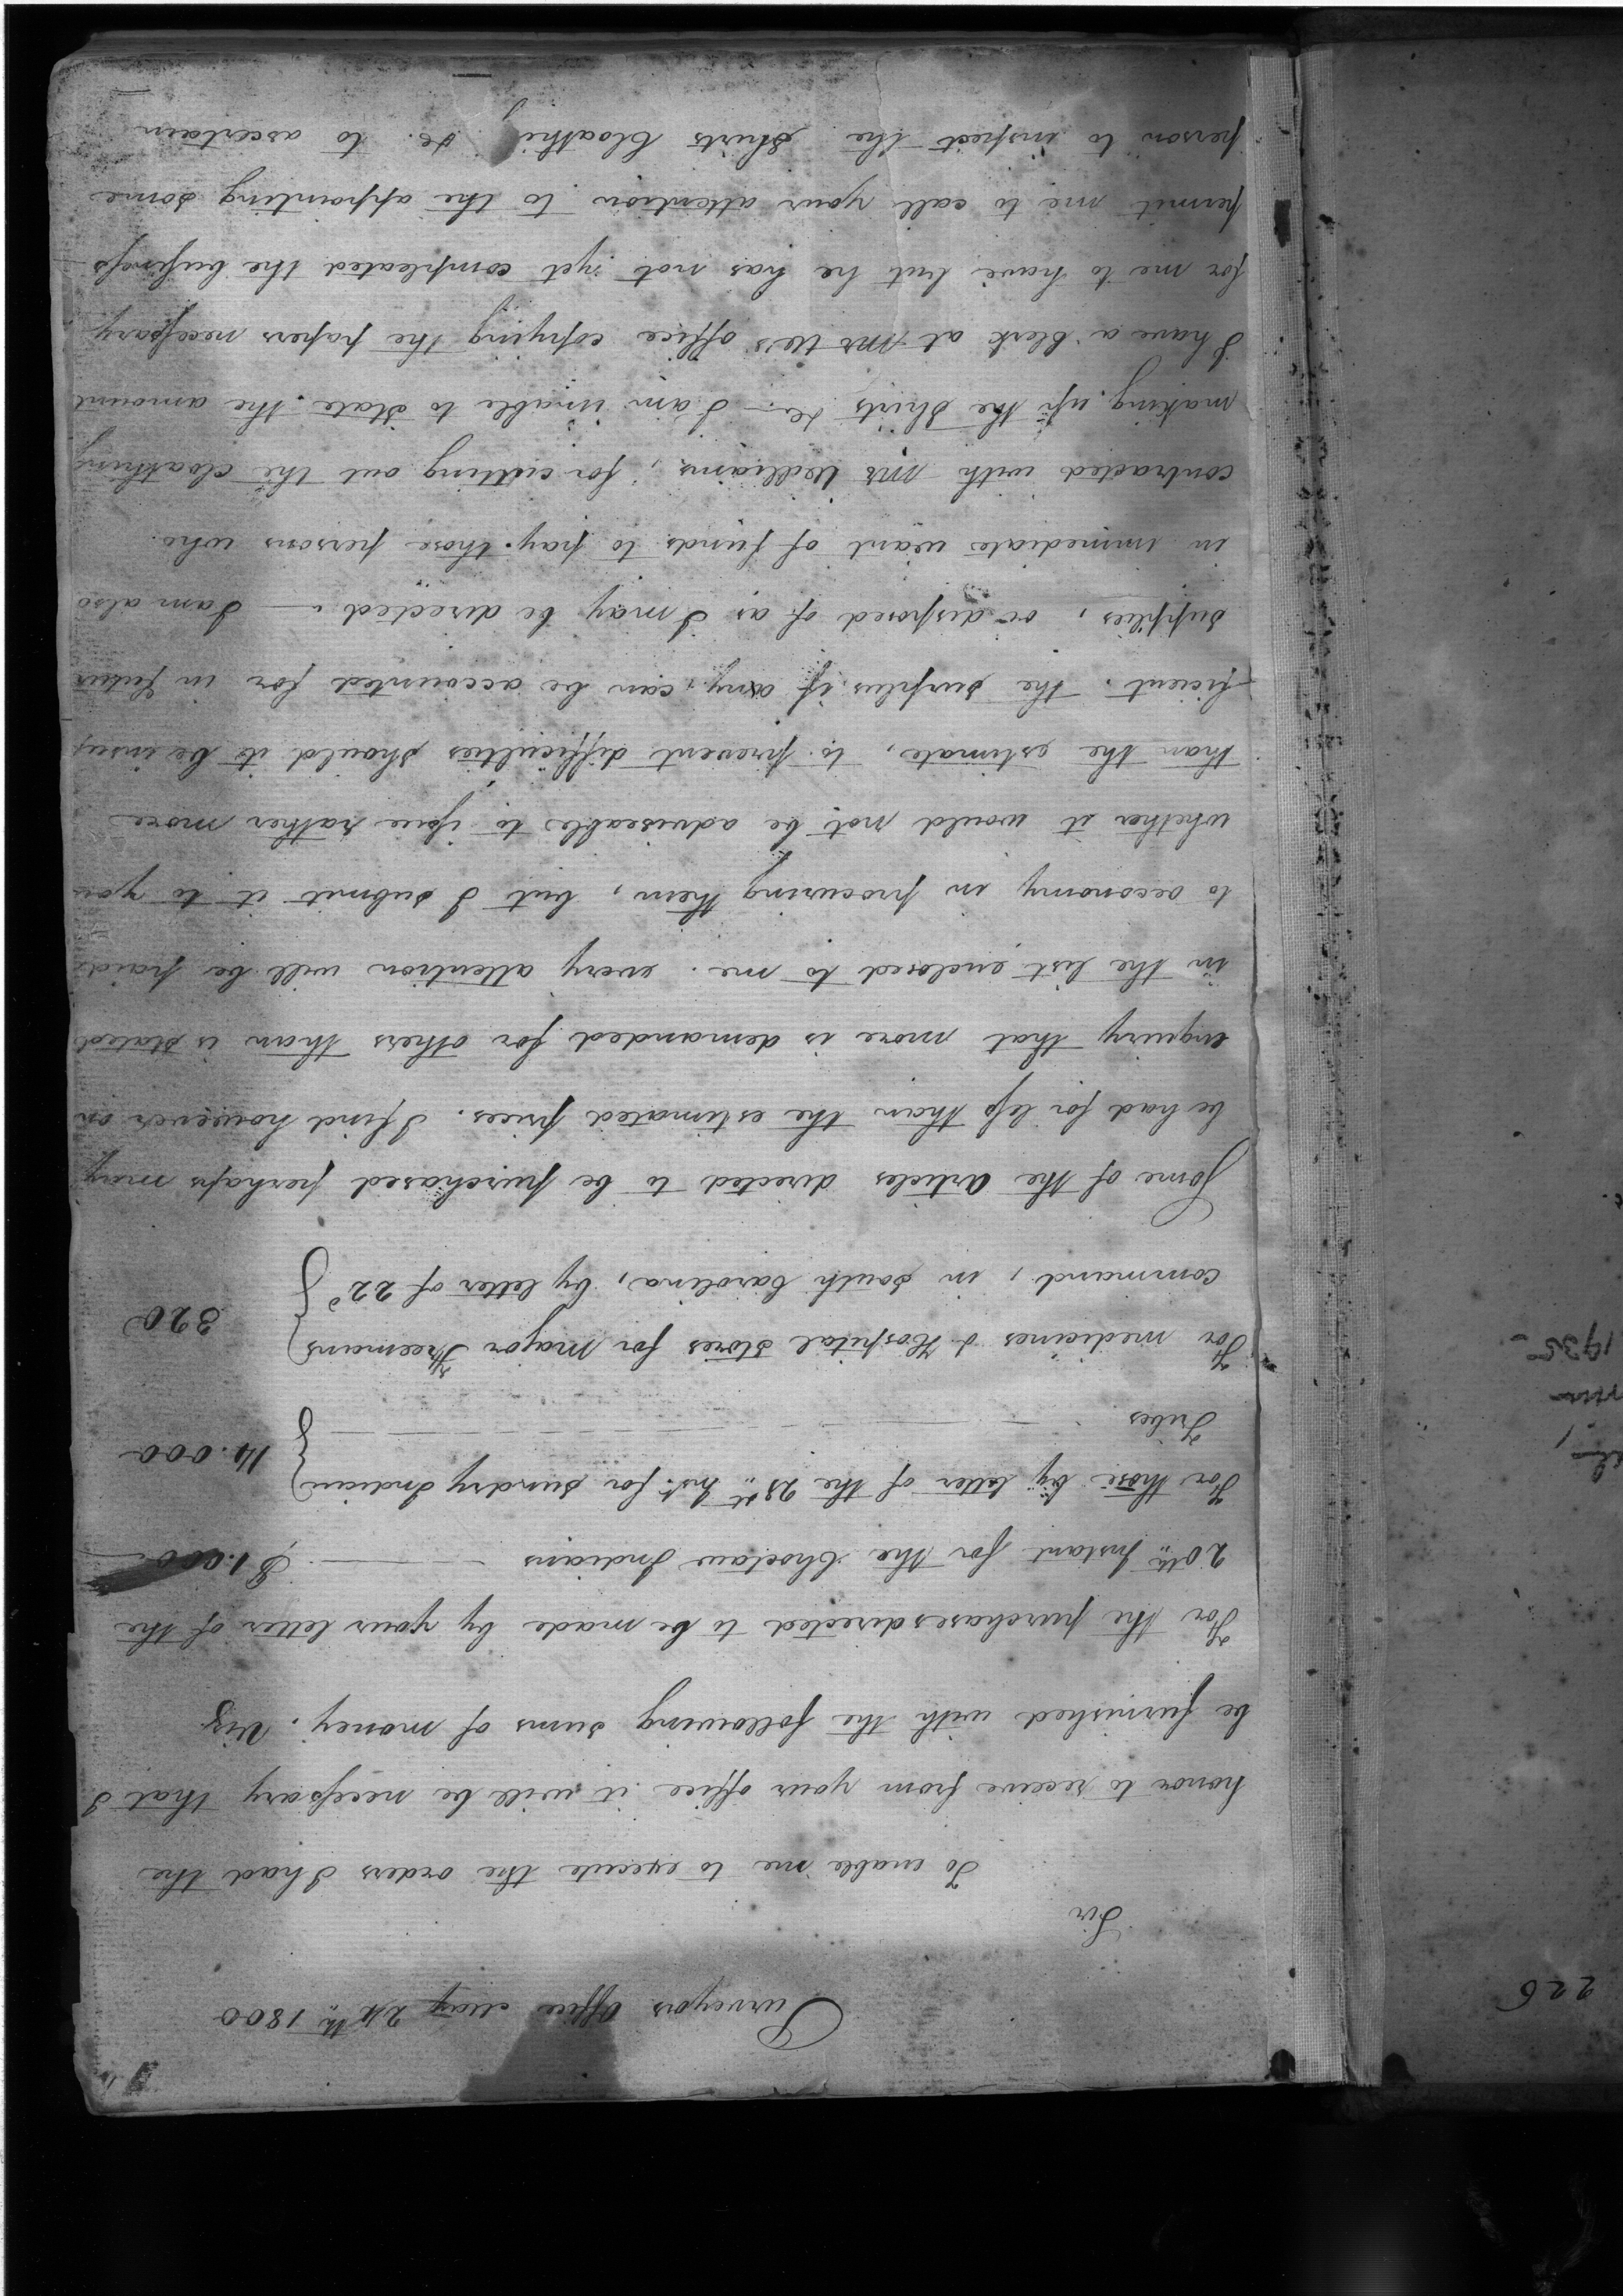 1
Purveyors Office May 24th 1800
Sir
To enable me to execute the orders I had the
honor to receive from your office it will be necessary that I
be furnished with the following sums of money. Viz
For the purchases directed to be made by your letter of the
20th Instant for the Choctaw Indians $1.000
For those by letter of the 23d Inst. for sundry Indian
Tribes 14.000
For medicines & Hospital Stores for Major Freemans
command, in South Carolina, by letter of 22d 320
Some of the articles directed to be purchased perhaps may
be had for less than the estimated prices. I find however on
enquiry that more is demanded for others than is stated
in the list enclosed to me. every attention will be paid
to oeconomy in procuring them, but I submit it to you
whether it would not be adviseable to give rather more
than the estimate, to prevent difficulties should it be insuf
ficient. the surplus if any, can be accounted for in future
supplies, or disposed of as I may be directed. I am also
in immediate want of funds to pay those persons who
contracted with Mr Williams, for cutting out the cloathing
making up the Shirts &c. I am unable to state the amount
I have a Clerk at Mr W's office copying the papers necessary
for me to have but he has not yet compleated the business
permit me to call your attention to the appointing some
person to inspect the Shirts Cloathing &c. to ascertain
226
1935